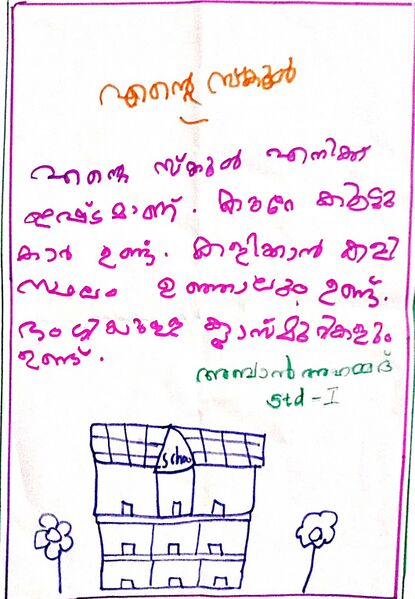 എന്റെ സ്കൂൾ
എന്റെ സ്കൂൾ എനിക്ക്
ഇഷ്ടമാണ്. കുറേ കൂട്ടു
കാർ ഉണ്ട്. കളിക്കാൻ കളി
സ്ഥലം ഉഞ്ഞാലും ഉണ്ട്.
ഭംഗിയുള്ള ക്ലാസ്മുറികളും
ഉണ്ട്.
അമ്പാൻ അഹമ്മദ്
std - I
School